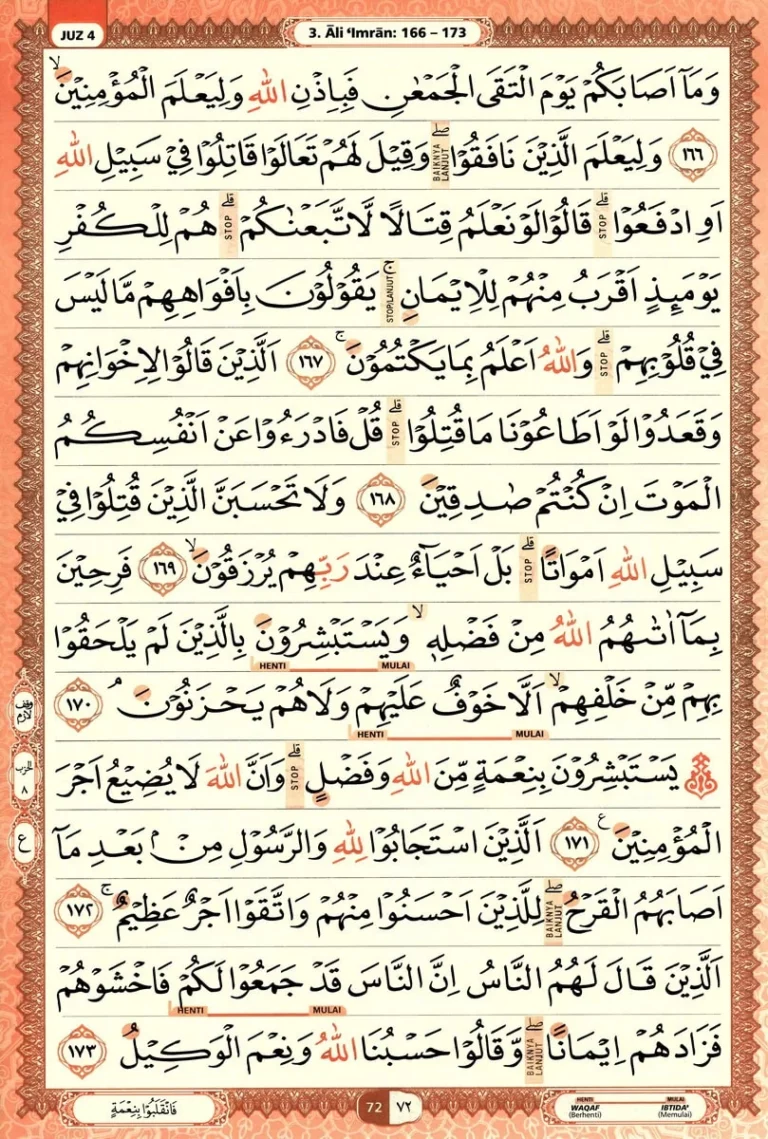 JUZ 4
3. Āli ‘Imrān: 166 – 173
وَمَآ اَصَابَكُمْ يَوْمَ الْتَقَى الْجَمْعٰنِ فَبِاِذْنِ اللّٰهِ وَلِيَعْلَمَ الْمُؤْمِنِيْنَۙ
١٦٦ وَلِيَعْلَمَ الَّذِيْنَ نَافَقُوْاۖ BAIKNYA LANJUT وَقِيْلَ لَهُمْ تَعَالَوْا قَاتِلُوْا فِيْ سَبِيْلِ اللّٰهِ
اَوِ ادْفَعُوْاۗ STOP قَالُوْا لَوْ نَعْلَمُ قِتَالًا لَّاتَّبَعْنٰكُمْۗ STOP هُمْ لِلْكُفْرِ
يَوْمَىِٕذٍ اَقْرَبُ مِنْهُمْ لِلْاِيْمَانِۚ STOP/LANJUT يَقُوْلُوْنَ بِاَفْوَاهِهِمْ مَّا لَيْسَ
فِيْ قُلُوْبِهِمْۗ STOP وَاللّٰهُ اَعْلَمُ بِمَا يَكْتُمُوْنَۚ ١٦٧ اَلَّذِيْنَ قَالُوْا لِاِخْوَانِهِمْ
وَقَعَدُوْا لَوْ اَطَاعُوْنَا مَا قُتِلُوْاۗ STOP قُلْ فَادْرَءُوْا عَنْ اَنْفُسِكُمُ
الْمَوْتَ اِنْ كُنْتُمْ صٰدِقِيْنَ ١٦٨ وَلَا تَحْسَبَنَّ الَّذِيْنَ قُتِلُوْا فِيْ
سَبِيْلِ اللّٰهِ اَمْوَاتًاۗ STOP بَلْ اَحْيَاۤءٌ عِنْدَ رَبِّهِمْ يُرْزَقُوْنَۙ ١٦٩ فَرِحِيْنَ
بِمَآ اٰتٰىهُمُ اللّٰهُ مِنْ فَضْلِهٖۙ وَيَسْتَبْشِرُوْنَ بِالَّذِيْنَ لَمْ يَلْحَقُوْا
HENTI MULAI
بِهِمْ مِّنْ خَلْفِهِمْۙ اَلَّا خَوْفٌ عَلَيْهِمْ وَلَا هُمْ يَحْزَنُوْنَۘ ١٧٠
HENTI MULAI
وقف لازم
۞ يَسْتَبْشِرُوْنَ بِنِعْمَةٍ مِّنَ اللّٰهِ وَفَضْلٍۗ STOP وَاَنَّ اللّٰهَ لَا يُضِيْعُ اَجْرَ
الحزب ٨
الْمُؤْمِنِيْنَ ࣖ ١٧١ اَلَّذِيْنَ اسْتَجَابُوْا لِلّٰهِ وَالرَّسُوْلِ مِنْۢ بَعْدِ مَآ
ع
اَصَابَهُمُ الْقَرْحُۖ BAIKNYA LANJUT لِلَّذِيْنَ اَحْسَنُوْا مِنْهُمْ وَاتَّقَوْا اَجْرٌ عَظِيْمٌۚ ١٧٢
اَلَّذِيْنَ قَالَ لَهُمُ النَّاسُ اِنَّ النَّاسَ قَدْ جَمَعُوْا لَكُمْ فَاخْشَوْهُمْ
HENTI MULAI
فَزَادَهُمْ اِيْمَانًاۖ BAIKNYA LANJUT وَّقَالُوْا حَسْبُنَا اللّٰهُ وَنِعْمَ الْوَكِيْلُ ١٧٣
فَانْقَلَبُوْا بِنِعْمَةٍ
72 ٧٢
HENTI MULAI
WAQAF IBTIDA'
(Berhenti) (Memulai)